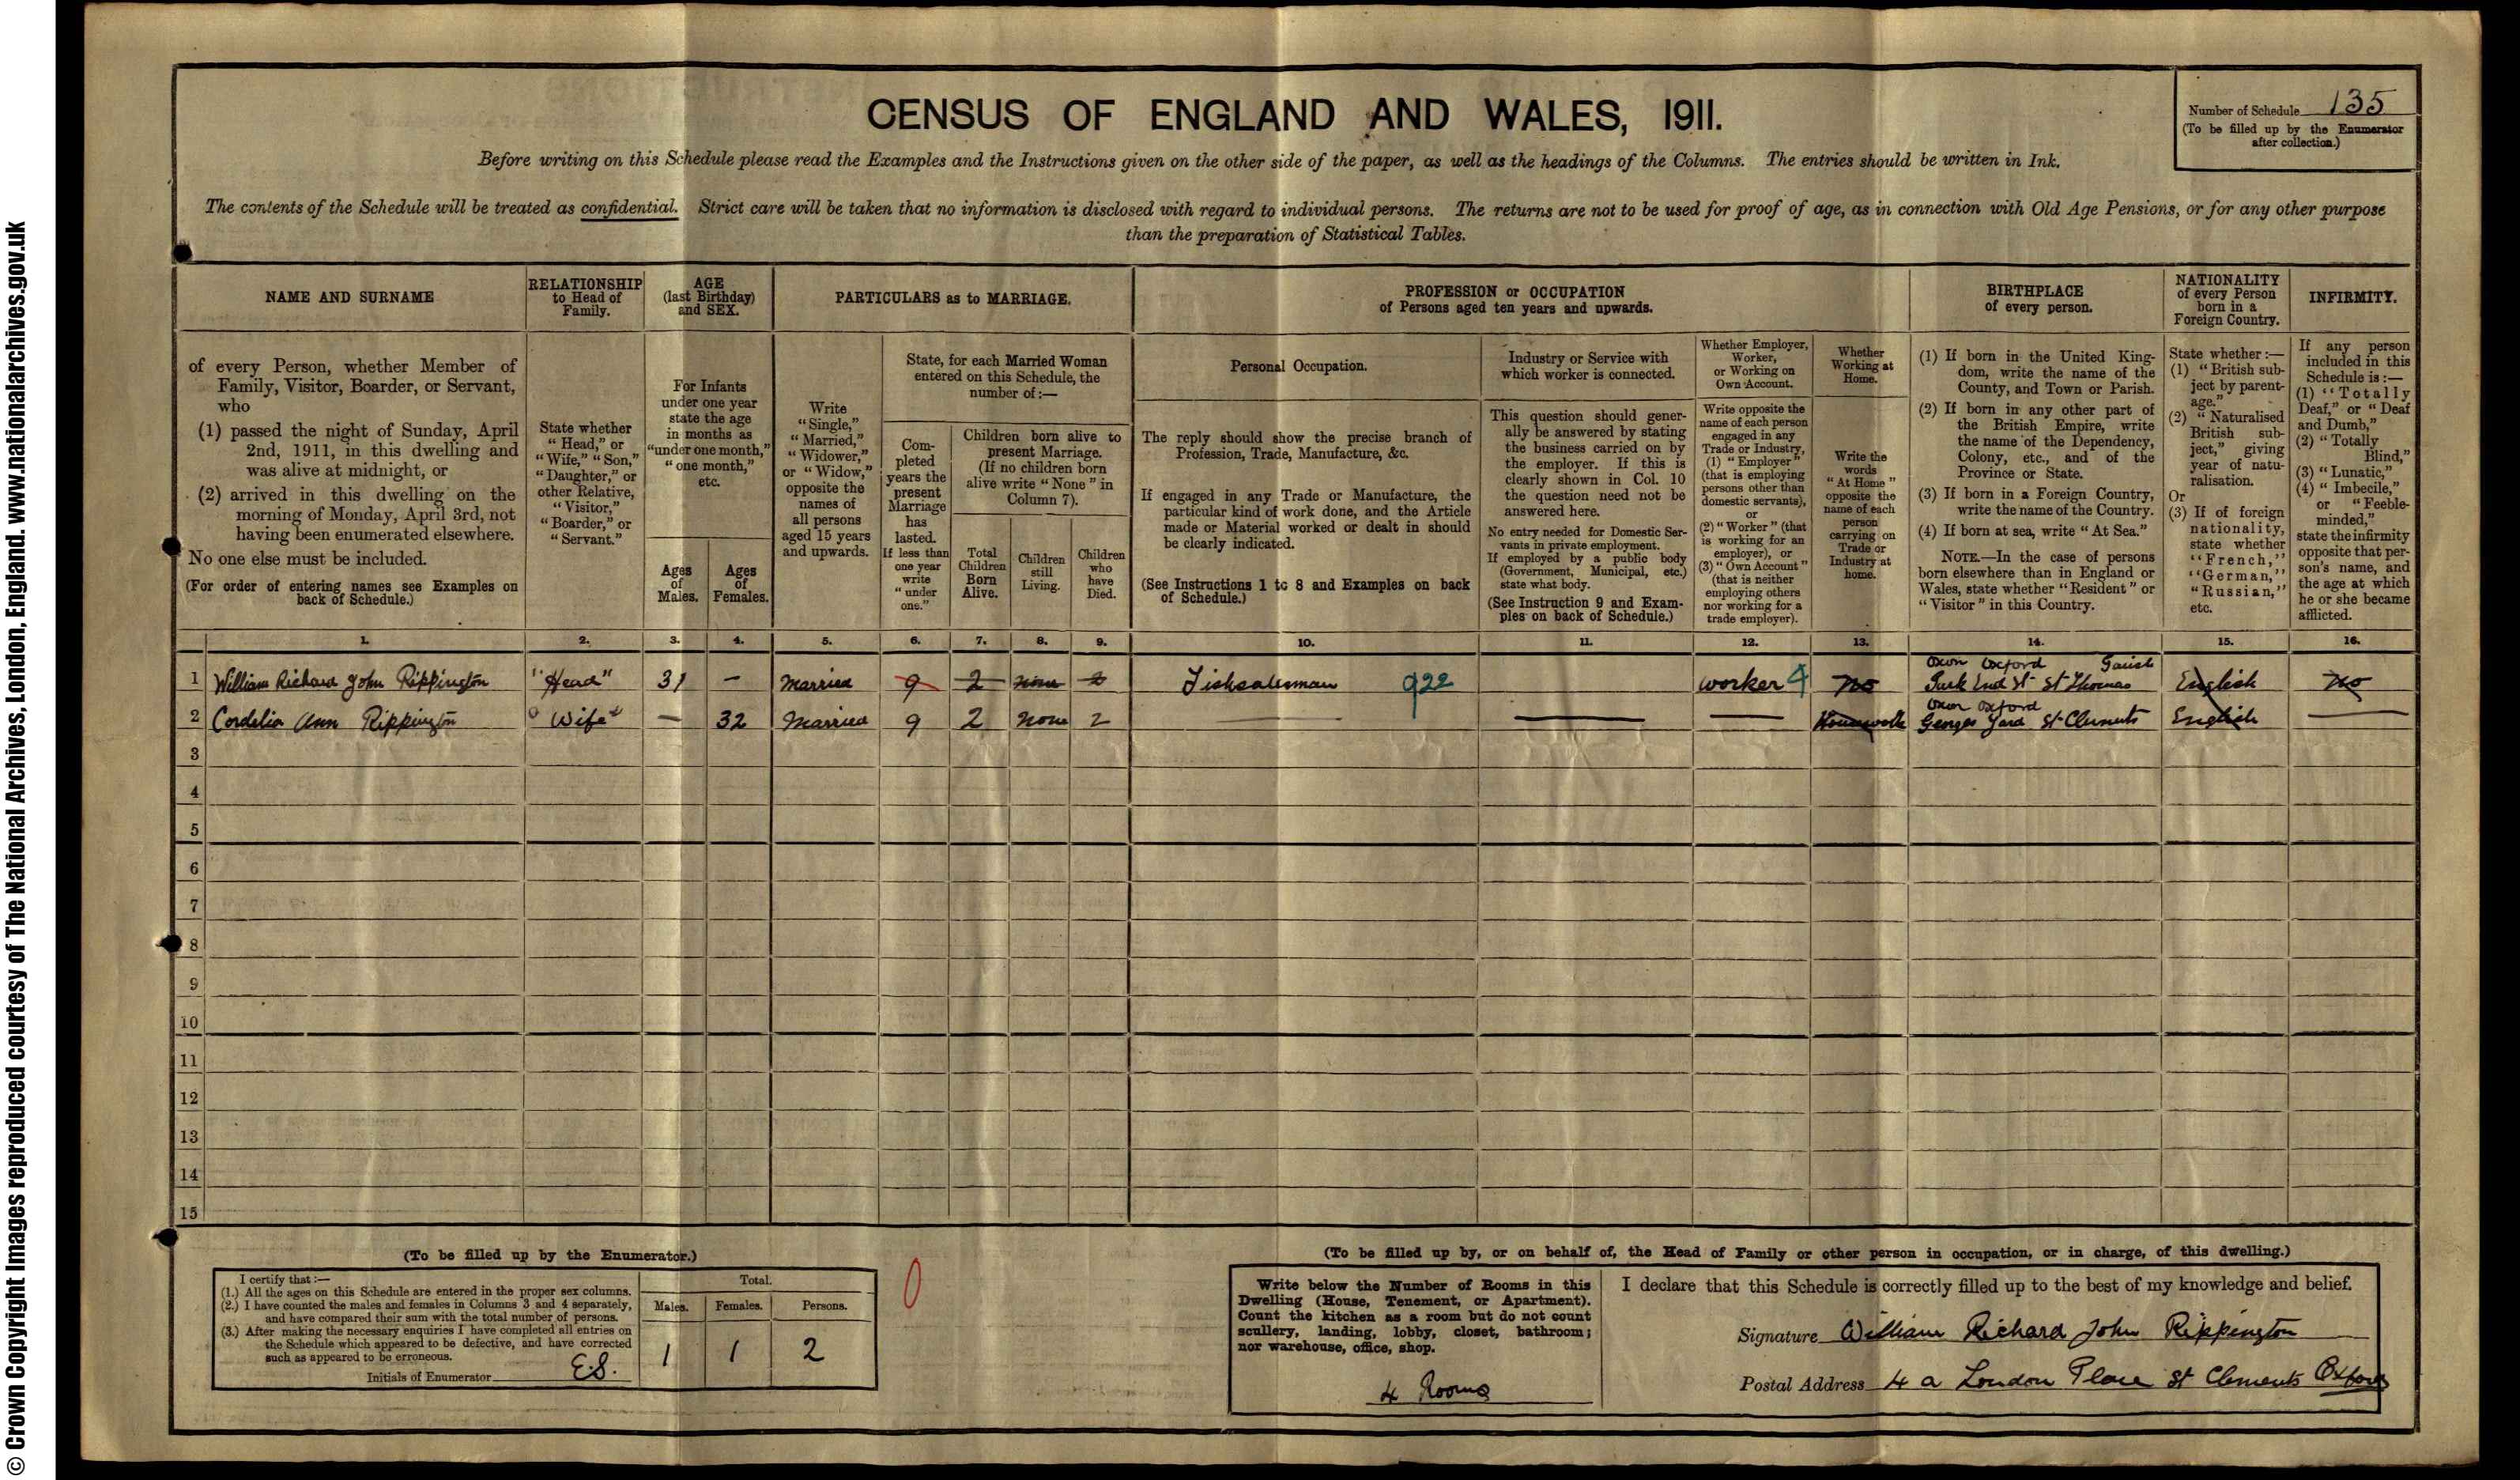 © Crown Copyright Images reproduced courtesy of The National Archives, London, England. www.nationalarchives.gov.uk
CENSUS OF ENGLAND AND WALES, 1911.
Number of Schedule 135
(To be filled up by the Enumerator
after collection.)
Before writing on this Schedule please read the Examples and the Instructions given on the other side of the paper, as well as the headings of the Columns. The entries should be written in Ink.
The contents of the Schedule will be treated as confidential. Strict care will be taken that no information is disclosed with regard to individual persons. The returns are not to be used for proof of age, as in connection with Old Age Pensions, or for any other purpose
than the preparation of Statistical Tables.
NAME AND SURNAME
of every Person, whether Member of
Family, Visitor, Boarder, or Servant,
who
(1) passed the night of Sunday, April
2nd, 1911, in this dwelling and
was alive at midnight, or
(2) arrived in this dwelling on the
morning of Monday, April 3rd, not
having been enumerated elsewhere.
No one else must be included.
(For order of entering names see Examples on
back of Schedule.)
RELATIONSHIP
to Head of
Family.
State whether
"Head," or
"Wife," "Son,"
"Daughter," or
other Relative,
"Visitor,"
"Boarder," or
"Servant."
AGE
(last Birthday)
and SEX.
For Infants
under one year
state the age
in months as
"under one month,"
"one month,"
etc.
Ages
of
Males.
Ages
of
Females.
PARTICULARS as to MARRIAGE.
Write
"Single,"
"Married,"
"Widower,"
or "Widow,"
opposite the
names of
all persons
aged 15 years
and upwards.
State, for each Married Woman
entered on this Schedule, the
number of:—
Com-
pleted
years the
present
Marriage
has
lasted.
If less than
one year
write
"under
one."
Children born alive to
present Marriage.
(If no children born
alive write "None" in
Column 7).
Total
Children
Born
Alive.
Children
still
Living.
Children
who
have
Died.
PROFESSION or OCCUPATION
of Persons aged ten years and upwards.
Personal Occupation.
The reply should show the precise branch of
Profession, Trade, Manufacture, &c.
If engaged in any Trade or Manufacture, the
particular kind of work done, and the Article
made or Material worked or dealt in should
be clearly indicated.
(See Instructions 1 to 8 and Examples on back
of Schedule.)
Industry or Service with
which worker is connected.
This question should gener-
ally be answered by stating
the business carried on by
the employer. If this is
clearly shown in Col. 10
the question need not be
answered here.
No entry needed for Domestic Ser-
vants in private employment.
If employed by a public body
(Government, Municipal, etc.)
state what body.
(See Instruction 9 and Exam-
ples on back of Schedule.)
Whether Employer,
Worker,
or Working on
Own Account.
Write opposite the
name of each person
engaged in any
Trade or Industry,
(1) "Employer"
(that is employing
persons other than
domestic servants),
or
(2) "Worker" (that
is working for an
employer), or
(3) "Own Account"
(that is neither
employing others
nor working for a
trade employer).
Whether
Working at
Home.
Write the
words
"At Home"
opposite the
name of each
person
carrying on
Trade or
Industry at
home.
BIRTHPLACE
of every person.
(1) If born in the United King-
dom, write the name of the
County, and Town or Parish.
(2) If born in any other part of
the British Empire, write
the name of the Dependency,
Colony, etc., and of the
Province or State.
(3) If born in a Foreign Country,
write the name of the Country.
(4) If born at sea, write "At Sea."
NOTE.—In the case of persons
born elsewhere than in England or
Wales, state whether "Resident" or
"Visitor" in this Country.
NATIONALITY
of every Person
born in a
Foreign Country.
State whether:—
(1) "British sub-
ject by parent-
age."
(2) "Naturalised
British sub-
ject," giving
year of natu-
ralisation.
Or
(3) If of foreign
nationality,
state whether
"French,"
"German,"
"Russian,"
etc.
INFIRMITY.
If any person
included in this
Schedule is:—
(1) "Totally
Deaf," or "Deaf
and Dumb,"
(2) "Totally
Blind,"
(3) "Lunatic,"
(4) "Imbecile,"
or "Feeble-
minded,"
state the infirmity
opposite that per-
son's name, and
the age at which
he or she became
afflicted.
1. 2. 3. 4. 5. 6. 7. 8. 9. 10. 11. 12. 13. 14. 15. 16.
Oxon Oxford Parish
1 William Richard John Rippington "Head" 31 – Married 9 2 none 2 Fishsalesman 922 worker 4 no Park End St St Thomas English no
Oxon Oxford
2 Cordelia Ann Rippington "Wife" — 32 Married 9 2 none 2 — — — Housework Georges Yard St Clements English —
3
4
5
6
7
8
9
10
11
12
13
14
15
(To be filled up by the Enumerator.)
I certify that:—
(1.) All the ages on this Schedule are entered in the proper sex columns.
(2.) I have counted the males and females in Columns 3 and 4 separately,
and have compared their sum with the total number of persons.
(3.) After making the necessary enquiries I have completed all entries on
the Schedule which appeared to be defective, and have corrected
such as appeared to be erroneous.
Initials of Enumerator E.S.
Total.
Males. Females. Persons.
1 1 2
0
(To be filled up by, or on behalf of, the Head of Family or other person in occupation, or in charge, of this dwelling.)
Write below the Number of Rooms in this
Dwelling (House, Tenement, or Apartment).
Count the kitchen as a room but do not count
scullery, landing, lobby, closet, bathroom;
nor warehouse, office, shop.
4 Rooms
I declare that this Schedule is correctly filled up to the best of my knowledge and belief.
Signature William Richard John Rippington
Postal Address 4 a London Place St Clements Oxford